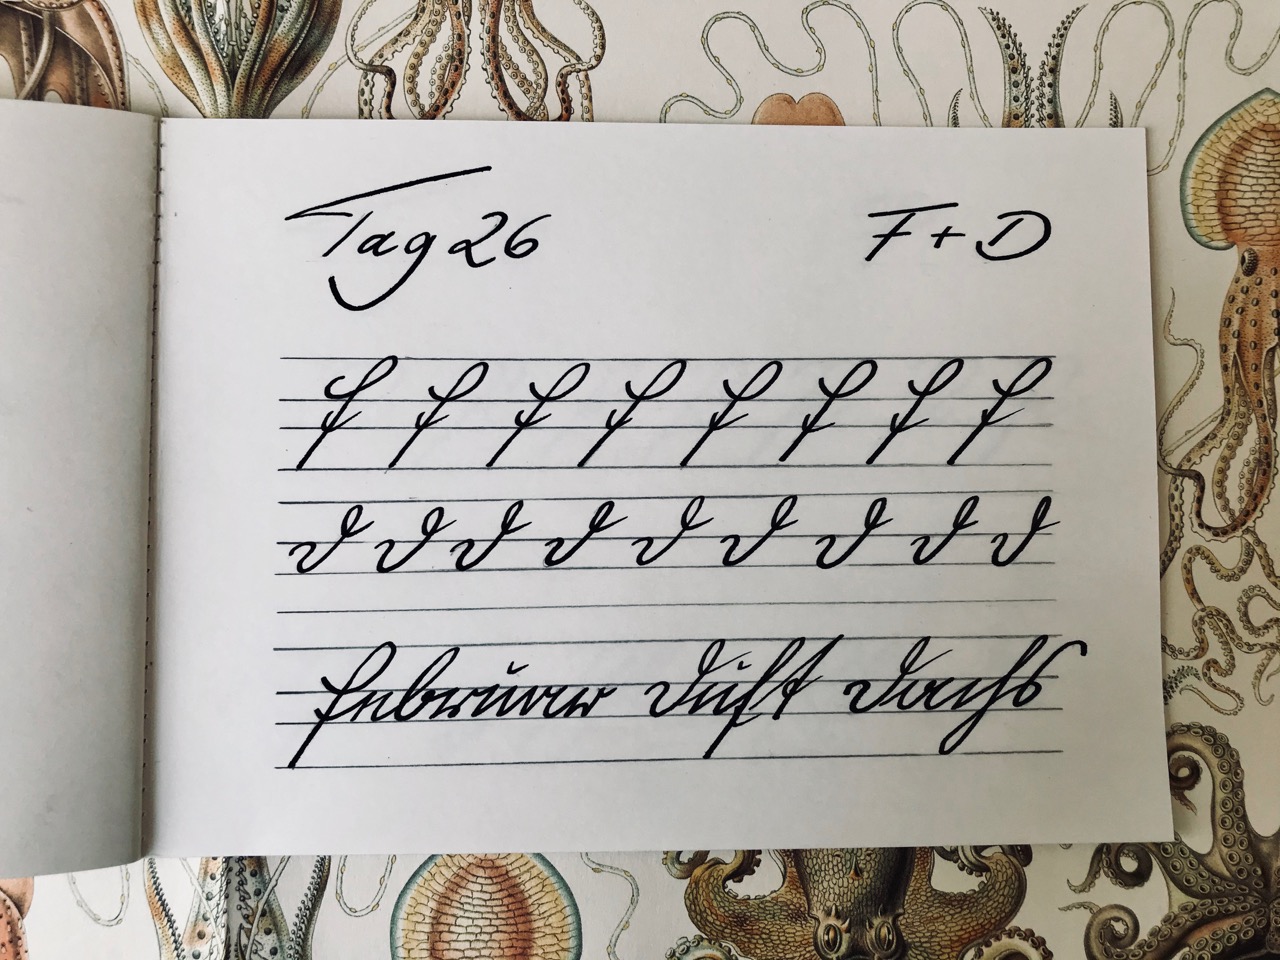 Tag 26 F + D
F F F F F F F F
D D D D D D D D D
Februar Duft Dachs